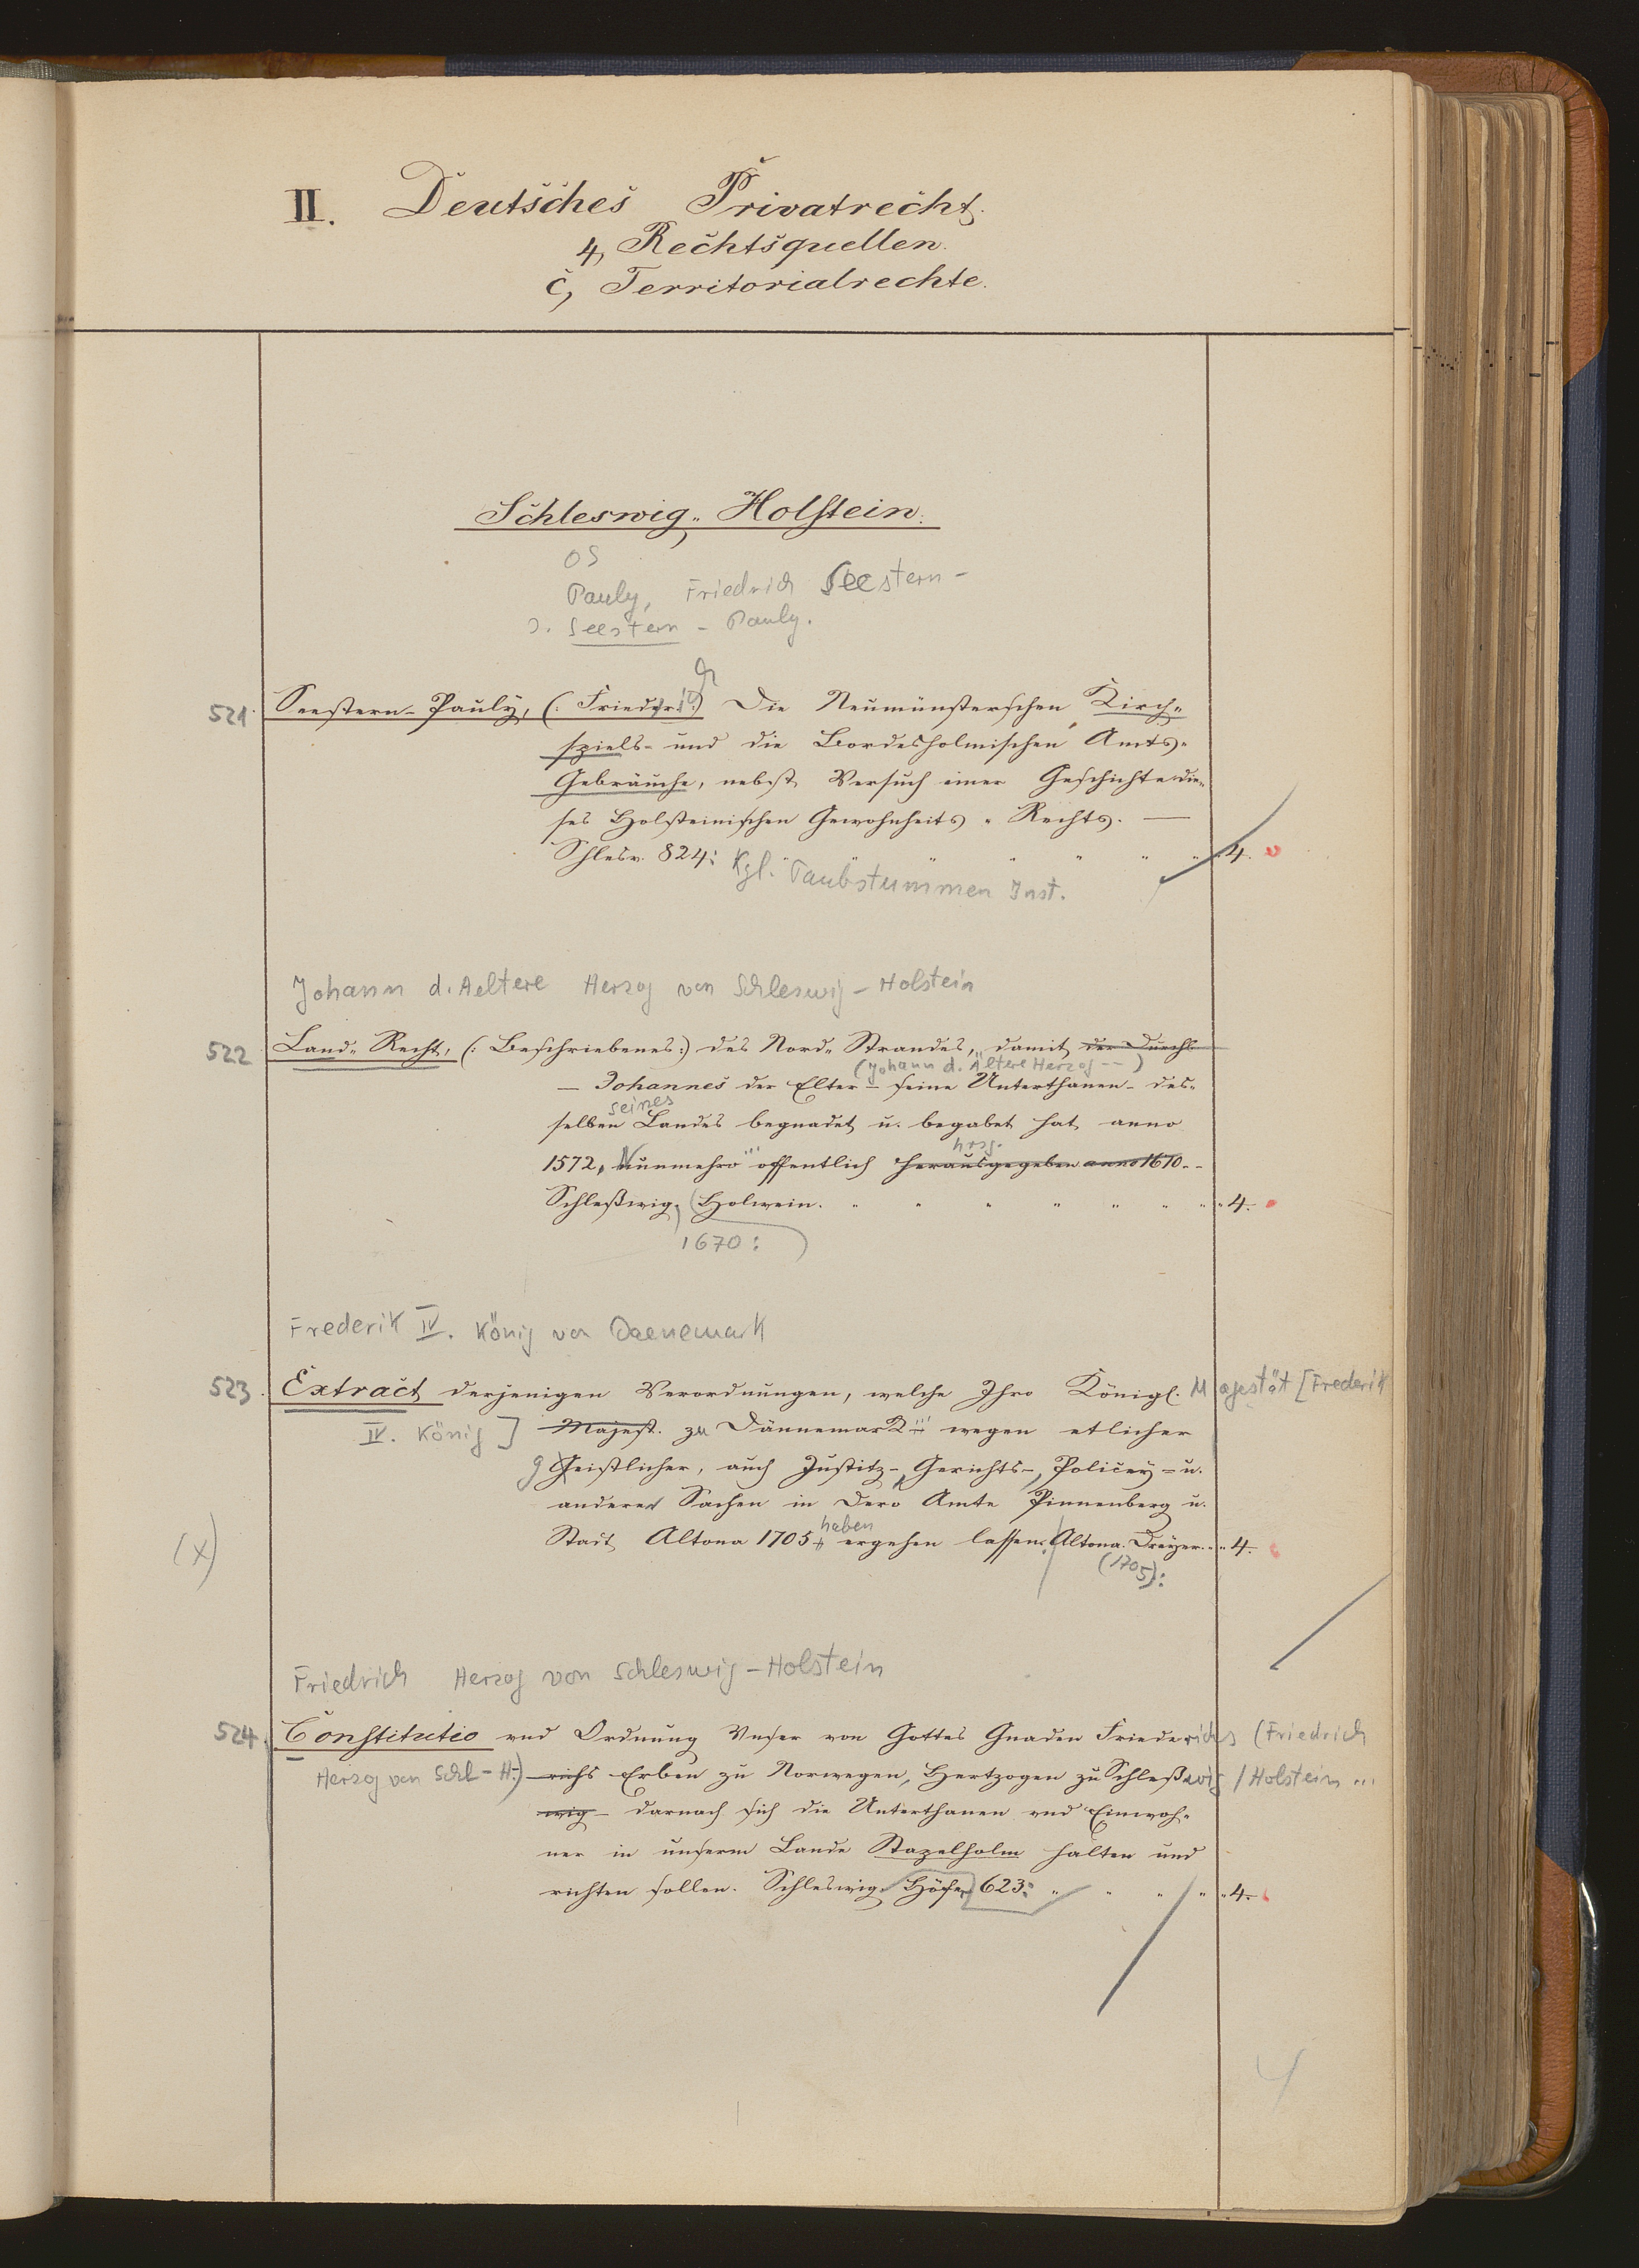 II. Deutsches Privatrecht.
4, Rechtsquellen.
c, Territorialrechte.
Schleswig-Holstein.
OS
Pauly, Friedrich Seestern-
s. Seestern-Pauly.
521. Seestern-Pauly, (: Friedr. :) Die Neumünsterschen Kirch-
spiels- und die Bordesholmischen Amts-
Gebräuche, nebst Versuch einer Geschichte die-
ses Holsteinischen Gewohnheits-Rechts. —
Schlesw. 824: " " " " " " " 4.
Kgl. Taubstummen Inst.
Johann d. Aeltere Herzog von Schleswig-Holstein
522 Land-Recht, (: Beschriebenes :) des Nord-Strandes, damit der Durchl.
(Johann d. Ältere Herzog --)
— Johannes der Elter — seine Unterthanen des-
seines
selben Landes begnadet u. begabet hat anno
hrsg.
1572, Nunmehro ... öffentlich herausgegeben anno 1670.-
Schleßwig, (Holwein. " " " " " " " 4.
1670: )
Frederik IV. König von Daenemark
523. Extract derjenigen Verordnungen, welche Ihro Königl. Majestät [Frederik
IV. König] Majest. zu Dännemark ... wegen etlicher
g Geistlicher, auch Justitz-, Gerichts-, Policey- u.
anderer Sachen in Dero Amte Pinnenberg u.
haben
Stadt Altona 1705 ergehen lassen. Altona. Dreyer. " " 4.
(x) (1705):
Friedrich Herzog von Schleswig-Holstein
524. Constitutio vnd Ordnung Vnser von Gottes Gnaden Friederichs (Friedrich
Herzog von Schl-H.) richs Erben zu Norwegen, Hertzogen zu Schleßwig / Holstein ...
wig — darnach sich die Unterthanen vnd Einwoh-
ner in unserm Lande Stapelholm halten und
richten sollen. Schleswig. 623: " " " " " 4.
4